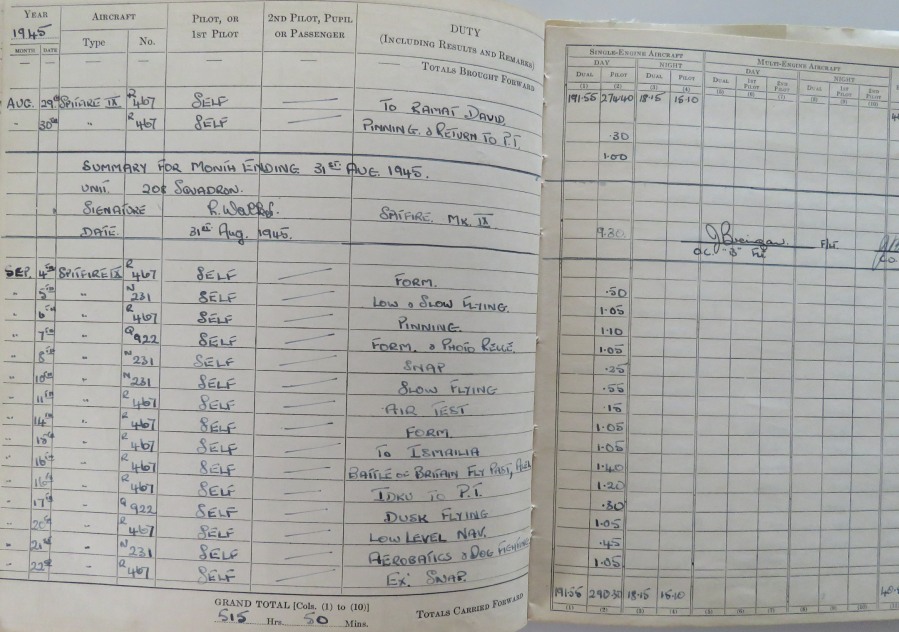 YEAR AIRCRAFT PILOT, OR 1ST PILOT 2ND PILOT, PUPIL OR PASSENGER DUTY (INCLUDING RESULTS AND REMARKS)
1945
MONTH DATE Type No.
— — — — — — —
TOTALS BROUGHT FORWARD
AUG. 29th SPITFIRE IX R 467 SELF — TO RAMAT DAVID
" 30th " R 467 SELF — PINNING & RETURN TO P.T.
SUMMARY FOR MONTH ENDING 31st AUG. 1945.
UNIT 208 SQUADRON.
SIGNATURE SPITFIRE MK. IX
DATE. 31st Aug. 1945.
SEP. 4th SPITFIRE IX R 467 SELF — FORM.
" 5th " N 231 SELF — LOW & SLOW FLYING.
" 6th " R 467 SELF — PINNING.
" 7th " Q 922 SELF — FORM. & PHOTO RECCE.
" 8th " N 231 SELF — SNAP
" 10th " N 231 SELF — SLOW FLYING
" 11th " R 467 SELF — AIR TEST
" 14th " R 467 SELF — FORM.
" 15th " R 467 SELF — TO ISMAILIA
" 16th " R 467 SELF — BATTLE OF BRITAIN FLY PAST,
" 16th " R 467 SELF — IDKU TO P.T.
" 17th " Q 922 SELF — DUSK FLYING
" 20th " R 467 SELF — LOW LEVEL NAV.
" 21st " N 231 SELF — AEROBATICS & DOG
" 22nd " R 467 SELF — EX: SNAP.
GRAND TOTAL [Cols. (1) to (10)]
515 Hrs. 50 Mins.
TOTALS CARRIED FORWARD
SINGLE-ENGINE AIRCRAFT MULTI-ENGINE AIRCRAFT
DAY NIGHT DAY NIGHT
DUAL PILOT DUAL PILOT DUAL 1ST PILOT 2ND PILOT DUAL 1ST PILOT 2ND PILOT
(1) (2) (3) (4) (5) (6) (7) (8) (9) (10)
191·55 274·40 18·15 15·10
·30
1·00
9.30
F/Lt
O.C. "B" Flt
·50
1·05
1·10
1·05
·25
·55
·15
1·05
1·05
1·40
1·20
·30
1·05
·45
1·05
191·55 290·30 18·15 15·10
(1) (2) (3) (4) (5) (6) (7) (8) (9) (10)